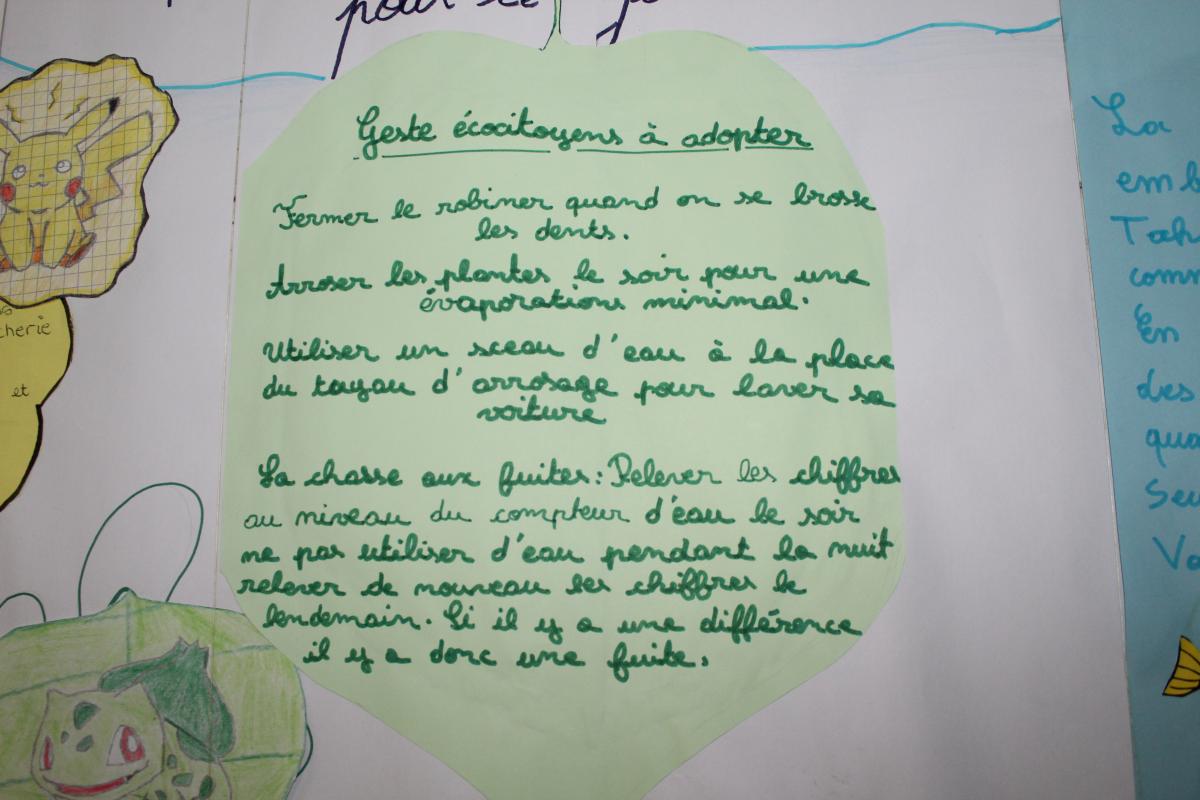 pour
Geste écocitoyens à adopter
Fermer le robiner quand on se brosse
les dents.
Arroser les plantes le soir pour une
évaporations minimal.
Utiliser un sceau d'eau à la place
du tuyau d'arrosage pour laver sa
voiture
La chasse aux fuites : Relever les chiffres
au niveau du compteur d'eau le soir
ne pas utiliser d'eau pendant la nuit
relever de nouveau les chiffres le
lendemain. Si il y a une différence
il y a donc une fuite.
cherie
et
La
emb
Tah
comm
En
des
qua
Seu
Va